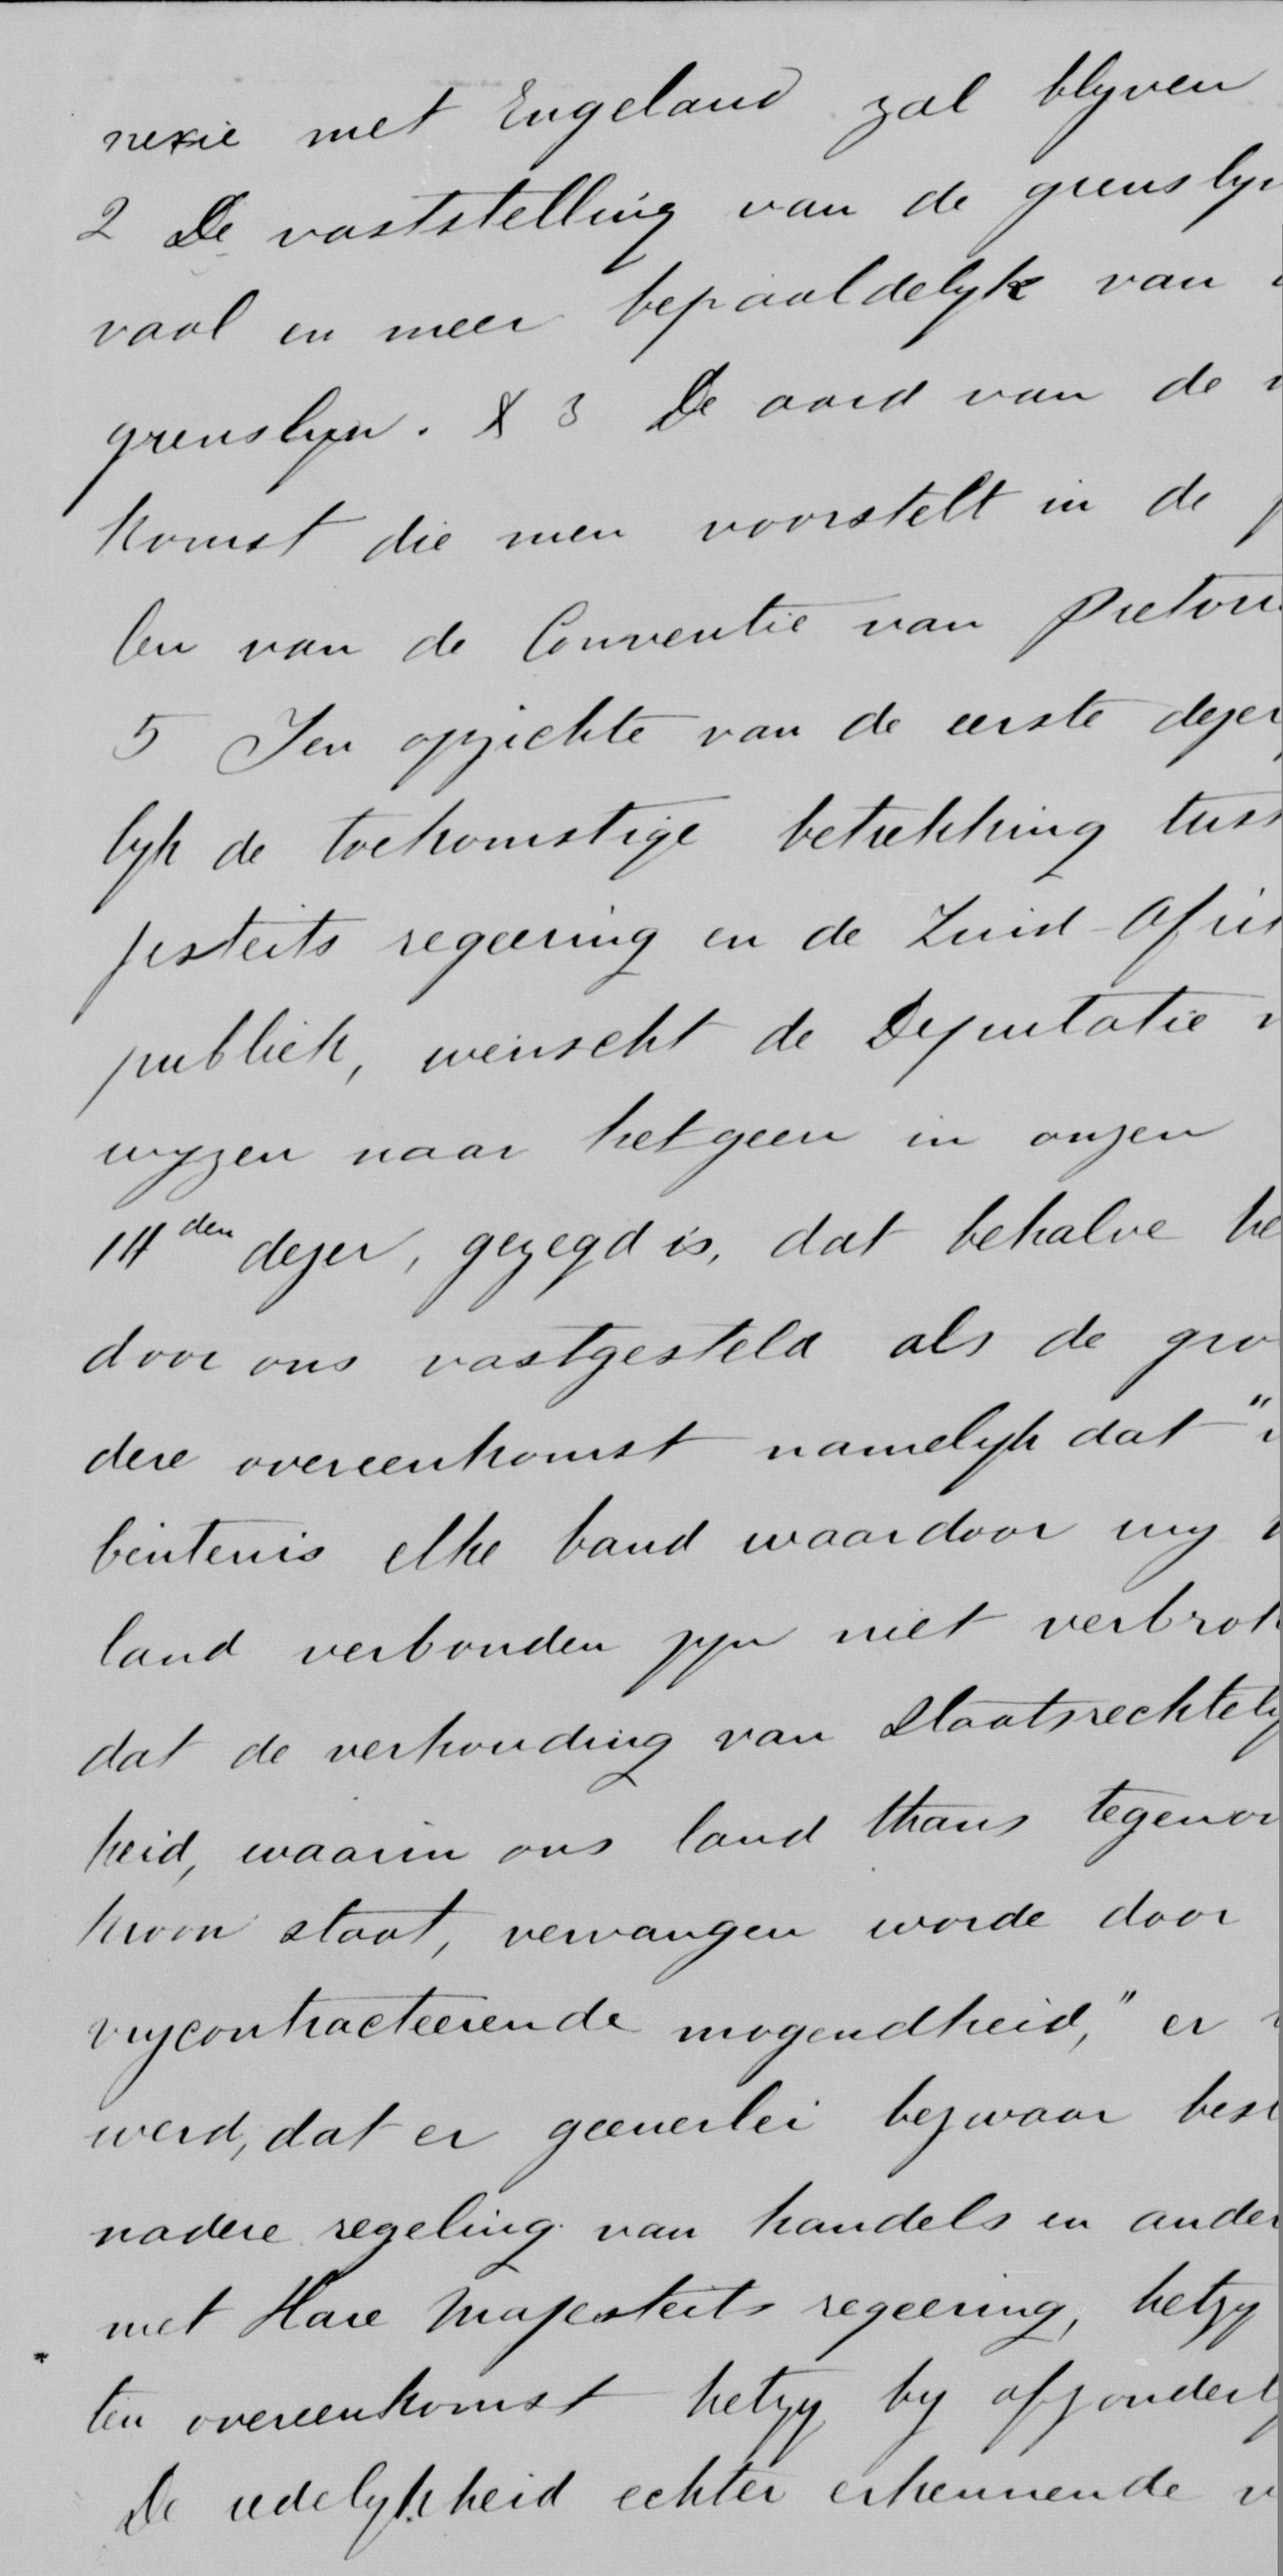 nexie met Engeland zal blyven
2 De vaststelling van de grenslyn
vaal en meer bepaaldelyk van
grenslyn. & 3 De aard van de
komst die men voorstelt in de
len van de Conventie van Pretori
5 Ten opzichte van de eerste dezer
lyk de toekomstige betrekking tuss
jesteits regeering en de Zuid-Afrik
publiek, wenscht de Deputatie
wyzen naar hetgeen in onzen
14den dezer, gezegd is, dat behalve he
door ons vastgesteld als de gro
dere overeenkomst namelyk dat "
bintenis elke band waardoor wy
land verbonden zyn niet verbrok
dat de verhouding van Staatsrechtely
heid, waarin ons land thans tegenov
kroon staat, vervangen worde door
vrycontracteerende mogendheid," er
werd, dat er geenerlei bezwaar best
nadere regeling van handels en ander
met Hare Majesteits regeering, hetzy
ten overeenkomst hetzy by afzonderly
De redelykheid echter erkennende